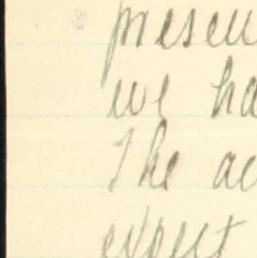 presen
we ha
The ac
expect